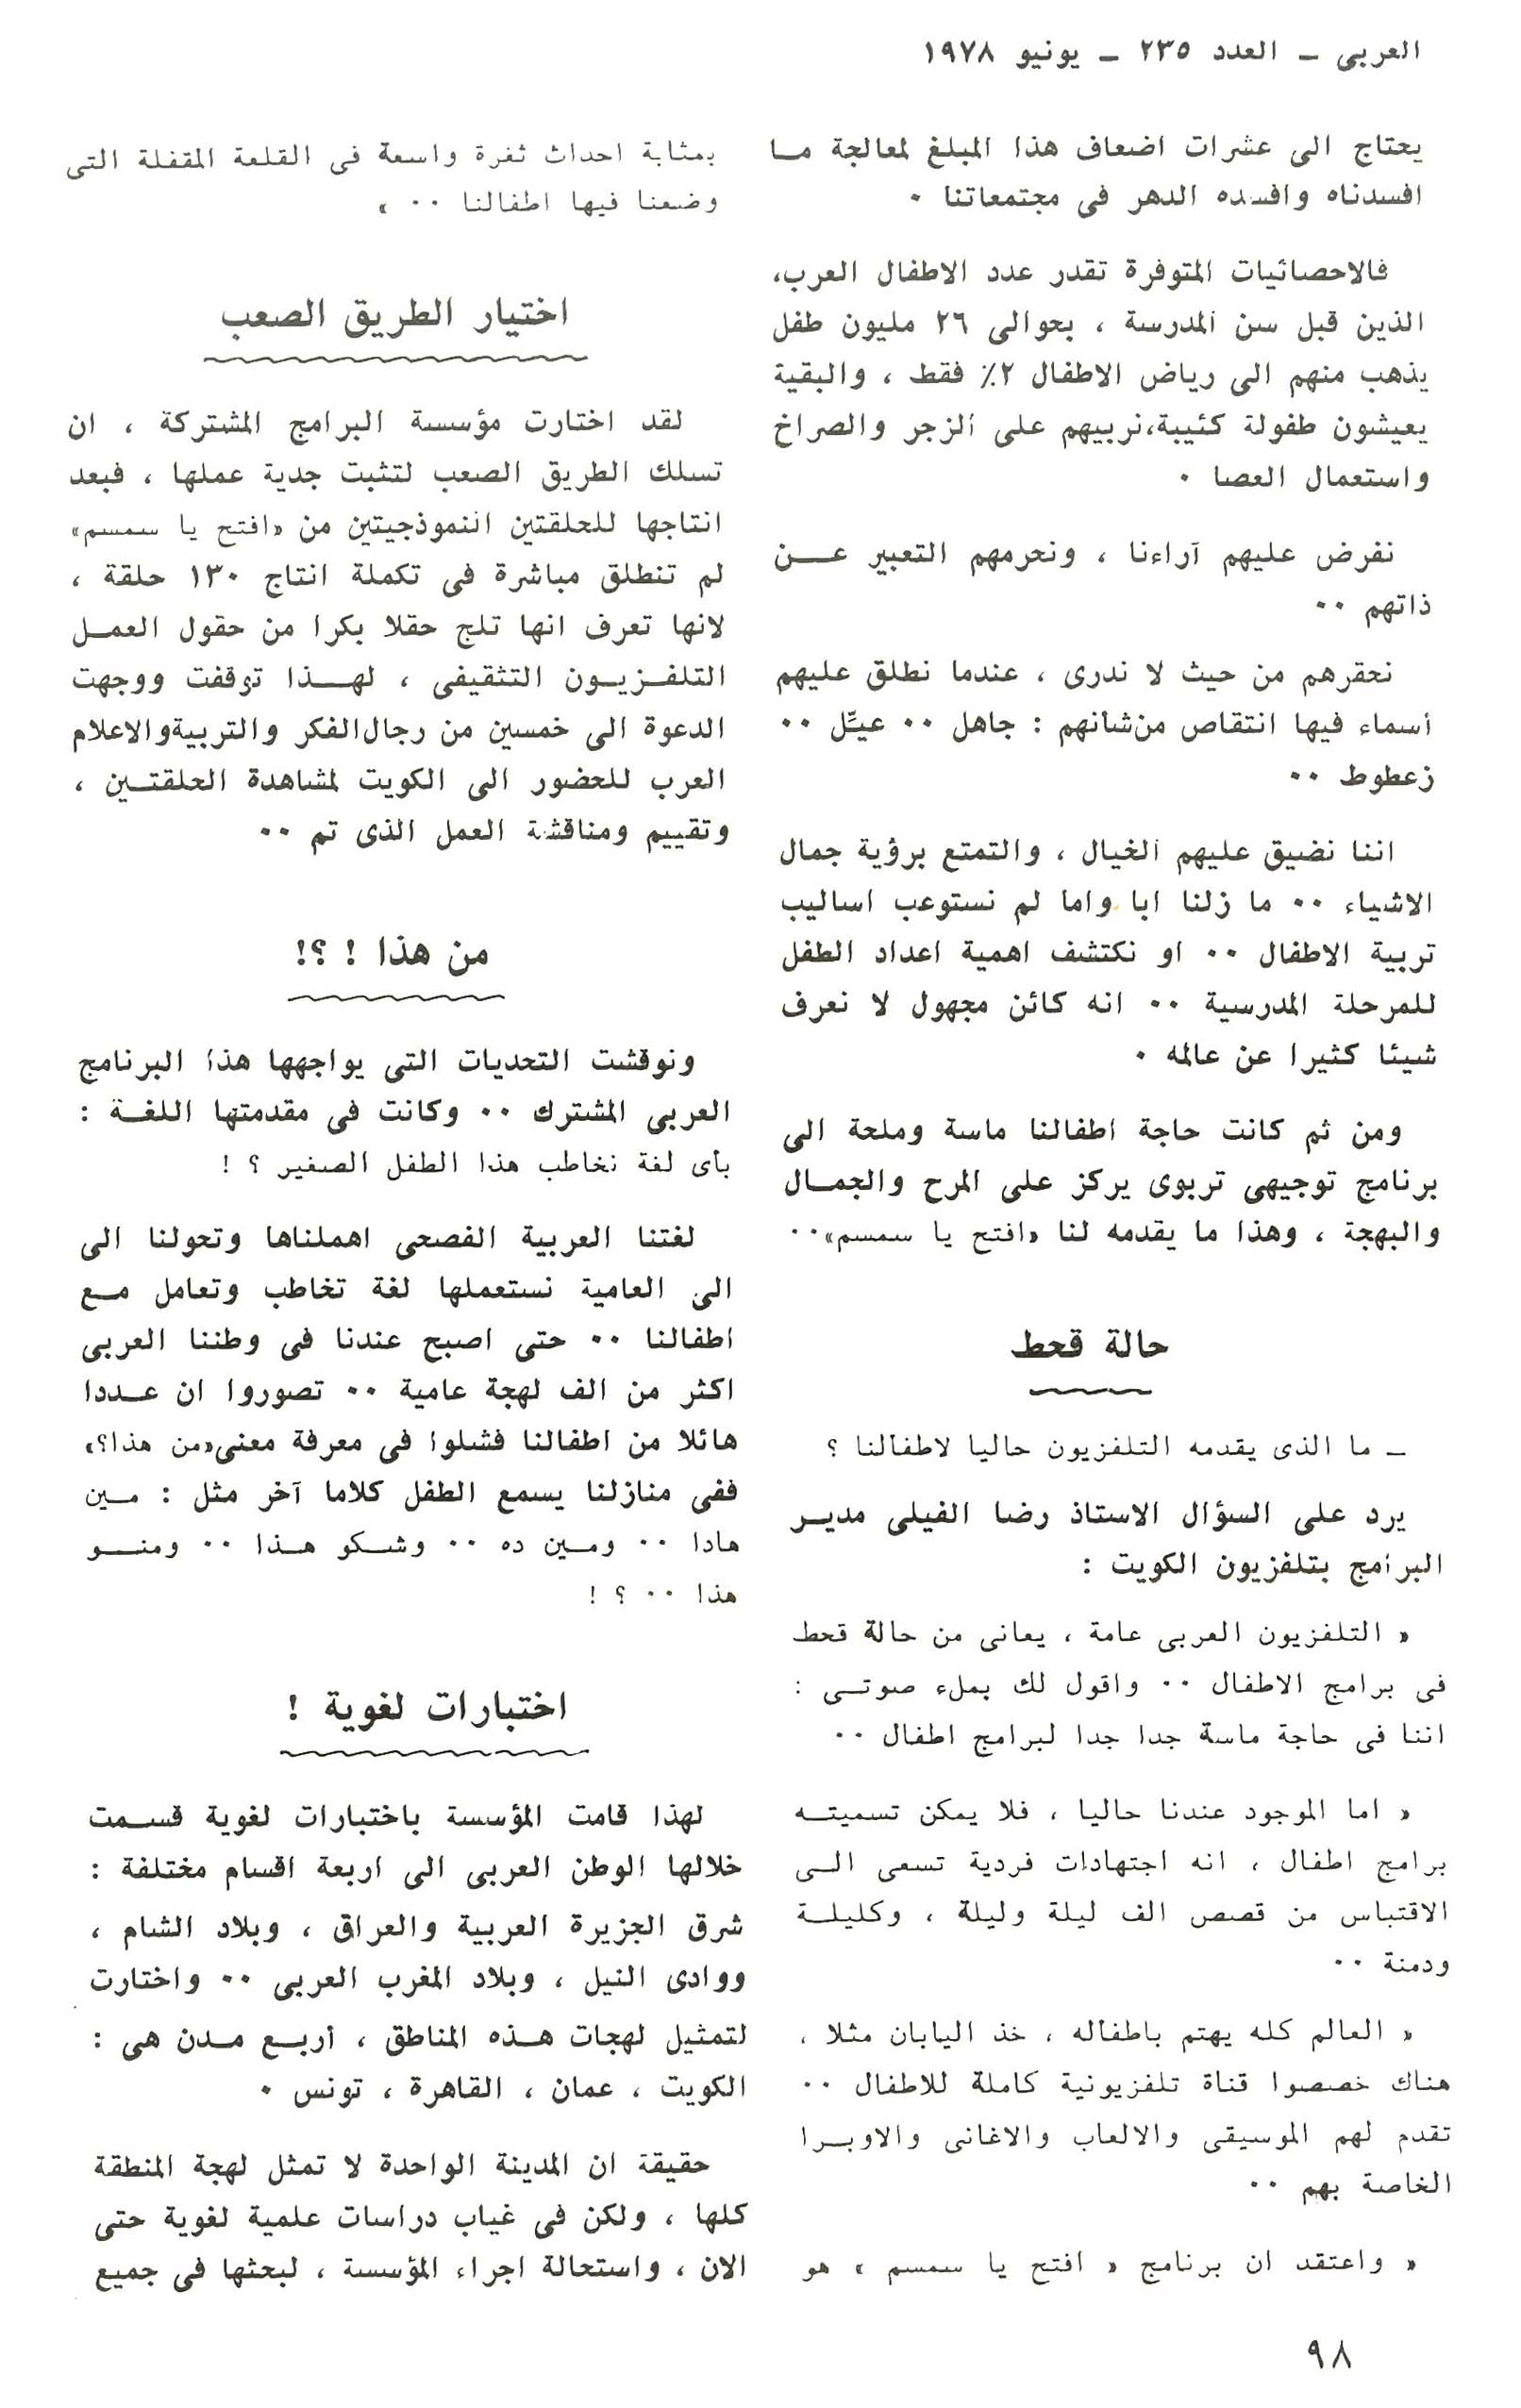 العربى ـ العدد ٢٣٥ ـ يونيو ١٩٧٨
يحتاج الى عشرات اضعاف هذا المبلغ لمعالجة مـا
افسدناه وافسده الدهر فى مجتمعاتنا ٠
فالاحصائيات المتوفرة تقدر عدد الاطفال العرب،
الذين قبل سن المدرسة ، بحوالى ٢٦ مليون طفل
يذهب منهم الى رياض الاطفال ٢٪ فقط ، والبقية
يعيشون طفولة كئيبة،نربيهم على الزجر والصراخ
واستعمال العصا ٠
نفرض عليهم آراءنا ، ونحرمهم التعبير عــن
ذاتهم ٠٠
نحقرهم من حيث لا ندرى ، عندما نطلق عليهم
أسماء فيها انتقاص من شأنهم : جاهل ٠٠ عيّل ٠٠
زعطوط ٠٠
اننا نضيق عليهم الخيال ، والتمتع برؤية جمال
الاشياء ٠٠ ما زلنا ابا واما لم نستوعب اساليب
تربية الاطفال ٠٠ او نكتشف اهمية اعداد الطفل
للمرحلة المدرسية ٠٠ انه كائن مجهول لا نعرف
شيئا كثيرا عن عالمه ٠
ومن ثم كانت حاجة اطفالنا ماسة وملحة الى
برنامج توجيهى تربوى يركز على المرح والجمـال
والبهجة ، وهذا ما يقدمه لنا «افتح يا سمسم»٠٠
حالة قحط
ـ ما الذى يقدمه التلفزيون حاليا لاطفالنا ؟
يرد على السؤال الاستاذ رضا الفيلى مديـر
البرامج بتلفزيون الكويت :
« التلفزيون العربى عامة ، يعانى من حالة قحط
فى برامج الاطفال ٠٠ واقول لك بملء صوتـى :
اننا فى حاجة ماسة جدا جدا لبرامج اطفال ٠٠
« اما الموجود عندنا حاليا ، فلا يمكن تسميتـه
برامج اطفال ، انه اجتهادات فردية تسعى الـى
الاقتباس من قصص الف ليلة وليلة ، وكليلـة
ودمنة ٠٠
« العالم كله يهتم باطفاله ، خذ اليابان مثلا ،
هناك خصصوا قناة تلفزيونية كاملة للاطفال ٠٠
تقدم لهم الموسيقى والالعاب والاغانى والاوبـرا
الخاصة بهم ٠٠
« واعتقد ان برنامج « افتح يا سمسم » هو
بمثابة احداث ثغرة واسعة فى القلعة المقفلة التى
وضعنا فيها اطفالنا ٠٠ »
اختيار الطريق الصعب
لقد اختارت مؤسسة البرامج المشتركة ، ان
تسلك الطريق الصعب لتثبت جدية عملها ، فبعد
انتاجها للحلقتين النموذجيتين من «افتح يا سمسم»
لم تنطلق مباشرة فى تكملة انتاج ١٣٠ حلقة ،
لانها تعرف انها تلج حقلا بكرا من حقول العمـل
التلفـزيـون التثقيفى ، لهــذا توقفت ووجهت
الدعوة الى خمسين من رجال الفكر والتربية والاعلام
العرب للحضور الى الكويت لمشاهدة الحلقتـين ،
وتقييم ومناقشة العمل الذى تم ٠٠
من هذا ! ؟!
ونوقشت التحديات التى يواجهها هذا البرنامج
العربى المشترك ٠٠ وكانت فى مقدمتها اللغـة :
بأى لغة نخاطب هذا الطفل الصغير ؟ !
لغتنا العربية الفصحى اهملناها وتحولنا الى
الى العامية نستعملها لغة تخاطب وتعامل مـع
اطفالنا ٠٠ حتى اصبح عندنا فى وطننا العربى
اكثر من الف لهجة عامية ٠٠ تصوروا ان عـددا
هائلا من اطفالنا فشلوا فى معرفة معنى«من هذا؟»
ففى منازلنا يسمع الطفل كلاما آخر مثل : مـين
هادا ٠٠ ومـين ده ٠٠ وشـكو هـذا ٠٠ ومنــو
هذا ٠٠ ؟ !
اختبارات لغوية !
لهذا قامت المؤسسة باختبارات لغوية قسـمت
خلالها الوطن العربى الى اربعة اقسام مختلفة :
شرق الجزيرة العربية والعراق ، وبلاد الشام ،
ووادى النيل ، وبلاد المغرب العربى ٠٠ واختارت
لتمثيل لهجات هـذه المناطق ، أربـع مـدن هى :
الكويت ، عمان ، القاهرة ، تونس ٠
حقيقة ان المدينة الواحدة لا تمثل لهجة المنطقة
كلها ، ولكن فى غياب دراسات علمية لغوية حتى
الان ، واستحالة اجراء المؤسسة ، لبحثها فى جميع
٩٨